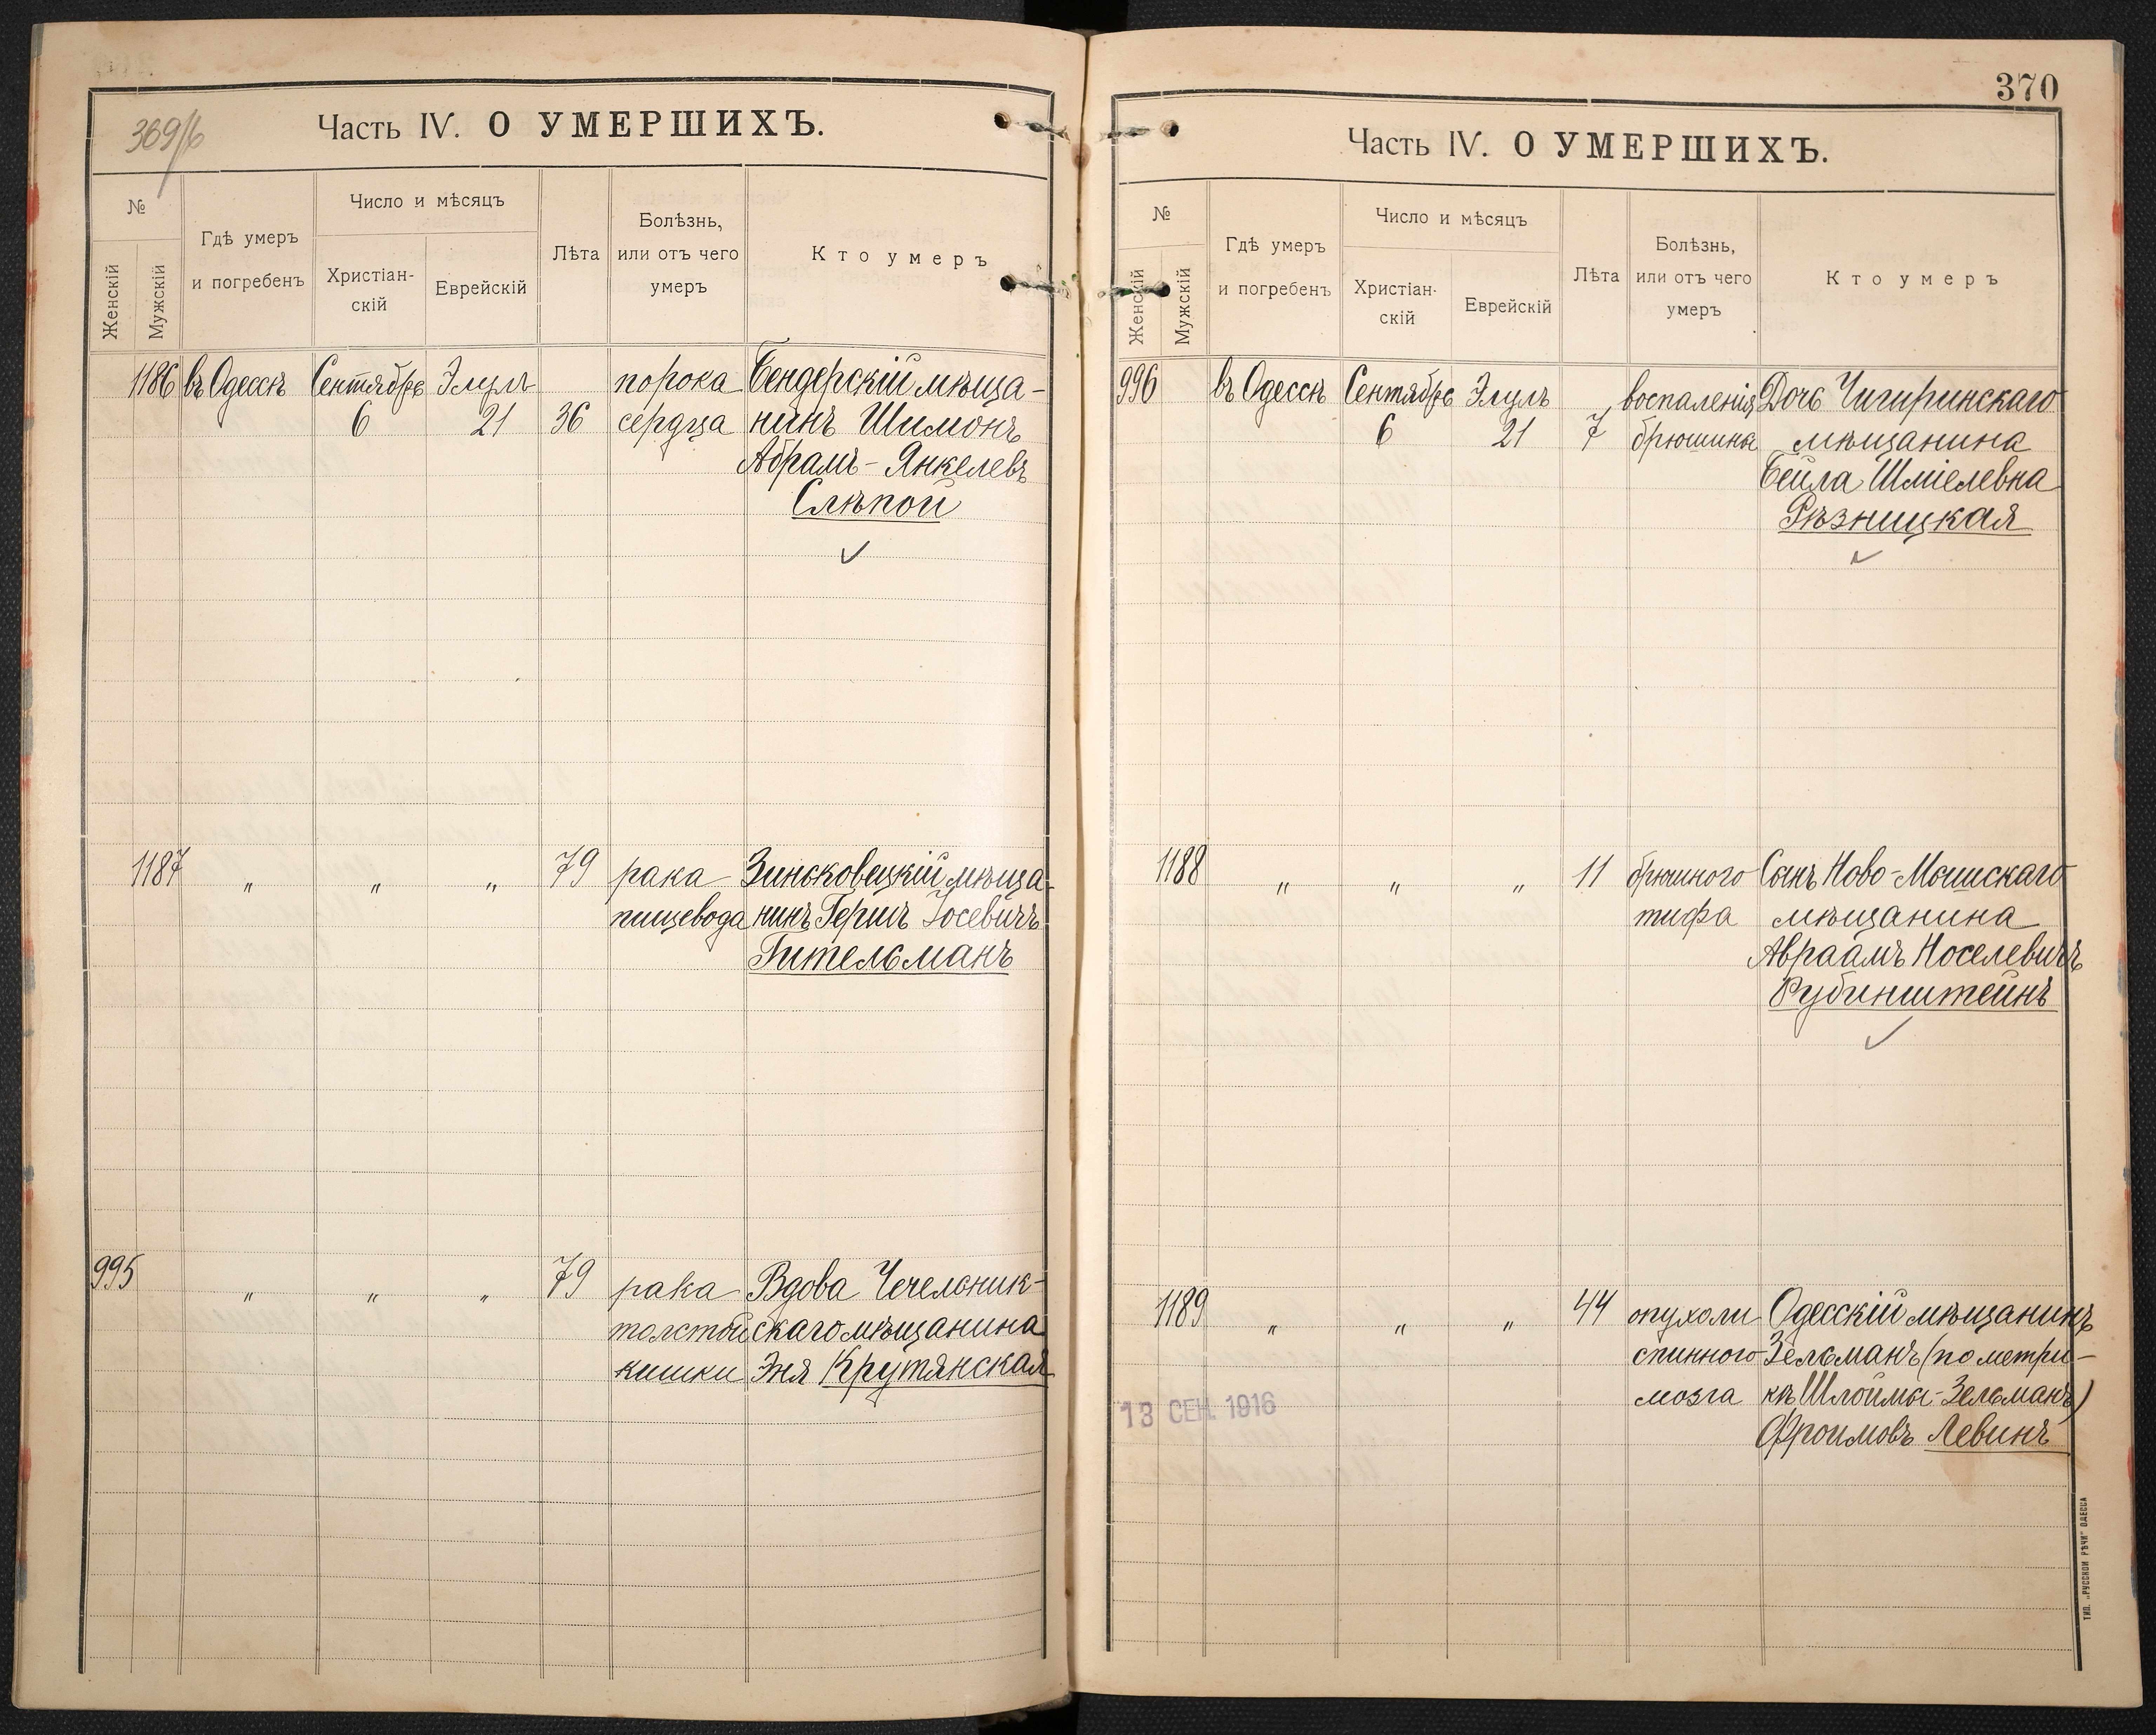 369/б
Часть IV. О УМЕРШИХЪ.
№
Женскій
Мужскій
Гдѣ умеръ
и погребенъ
Число и мѣсяцъ
Христіан-
скій
Еврейскій
Лѣта
Болѣзнь,
или отъ чего
умеръ
Кто умеръ
1186 въ Одессѣ Сентябрь Элулъ порока Бендерскій мѣща-
6 21 36 сердца нинъ Шимонъ
Абрамъ-Янкелевъ
Слѣпой
1187 „ „ „ 79 рака Зиньковецкій мѣща-
пищевода нинъ Гершъ Іосевичъ
Гительманъ
995 „ „ „ 79 рака Вдова Чечельник-
толстой скаго мѣщанина
кишки Эня Крутянская
370
Часть IV. О УМЕРШИХЪ.
№
Женскій
Мужскій
Гдѣ умеръ
и погребенъ
Число и мѣсяцъ
Христіан-
скій
Еврейскій
Лѣта
Болѣзнь,
или отъ чего
умеръ
Кто умеръ
996 въ Одессѣ Сентябрь Элулъ воспаленія Дочь Чигиринскаго
6 21 7 брюшины мѣщанина
Бейла Шміелевна
Рѣзницкая
1188 „ „ „ 11 брюшного Сынъ Ново-Мышскаго
тифа мѣщанина
Авраамъ Носелевичъ
Рубинштейнъ
1189 „ „ „ 44 опухоли Одесскій мѣщанинъ
спинного Зельманъ (по метри-
мозга кѣ Шлойма-Зельманъ)
Фроимовъ Левинъ
13 СЕН. 1916
ТИП. „РУССКОЙ РѢЧИ" ОДЕССА